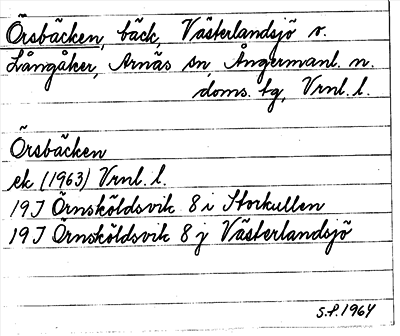 Örsbäcken, bäck, Västerlandsjö o.
Långåker, Arnäs sn, Ångermanl. n.
doms. tg, Vrnl. l.
Örsbäcken
ek (1963) Vrnl. l.
19 J Örnsköldsvik 8 i Storkullen
19 J Örnsköldsvik 8 j Västerlandsjö
S.f. 1964